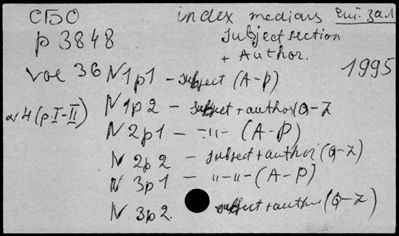 СБО index medicus Чит. зал
р 3848 subject section
+ Author.
vol 36 N1p1 - subject (A-P) 1995
N1p2 - subject + author (Q-Z
N4 (p I-II) N2p1 - -"- (A-P)
N 2p2 - subject + author (Q-Z)
N 3p1 - "-"- (A-P)
N 3p2. subject + author (Q-Z)